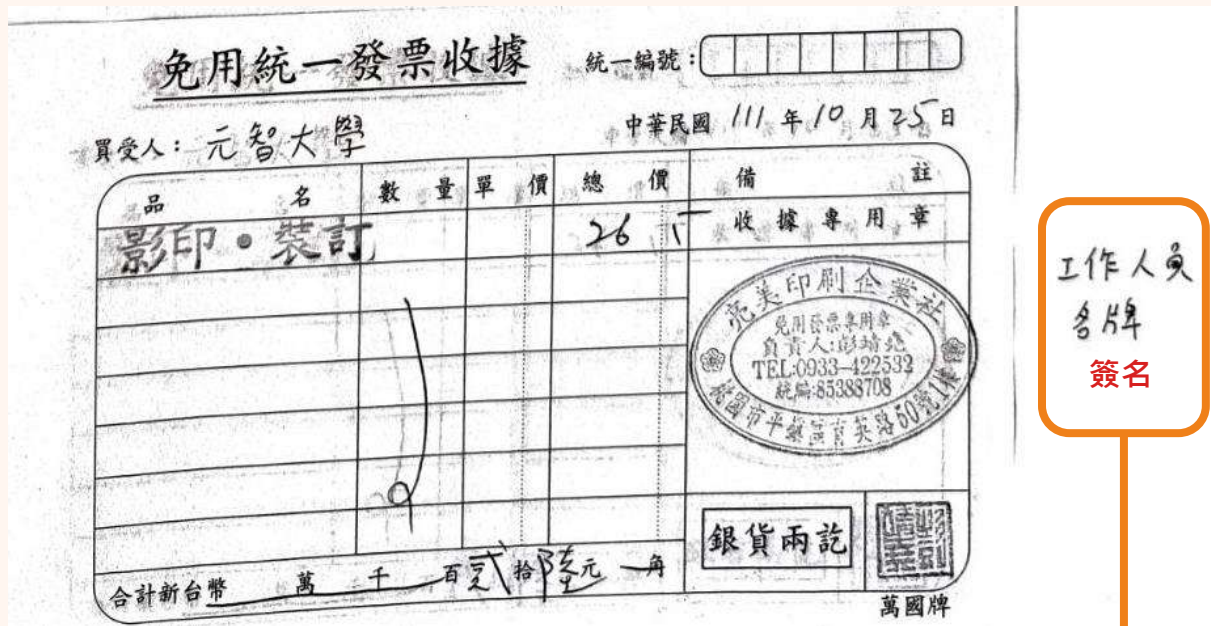 免用統一發票收據
統一編號：
買受人：元智大學
中華民國 111 年 10 月 25 日
品名 數量 單價 總價 備註
影印・裝訂 26
收據專用章
亮美印刷企業社
免用發票專用章
負責人:彭
TEL:0933-422532
統編:85388708
桃園市平鎮區育英路50號1樓
合計新台幣 萬 千 百 貳 拾 陸 元 角
銀貨兩訖
萬國牌
工作人員
名牌
簽名